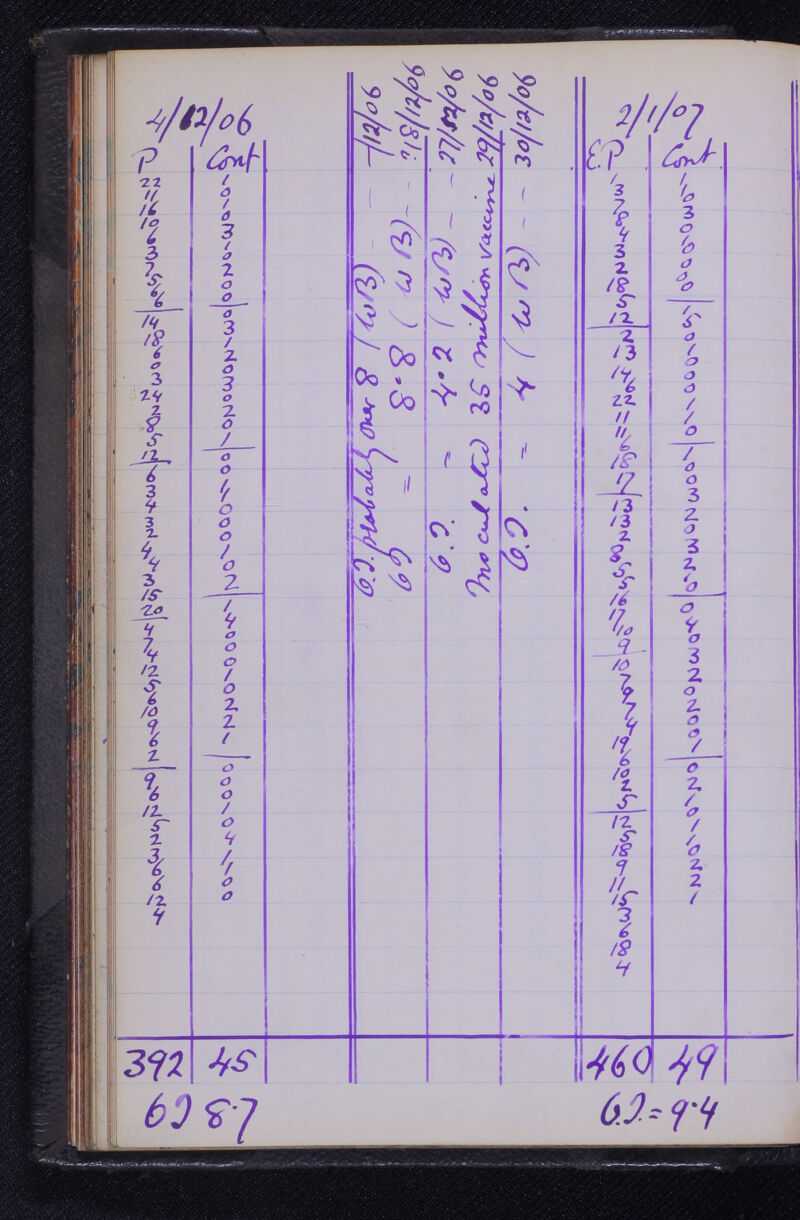 4/12/06
P Cont
22 1
11 0
16 1
10 0
6 3
3 1
7 0
5 2
6 0
6 0
14 0
18 3
6 1
0 2
3 0
24 3
2 0
8 2
5 0
12 1
6 0
3 0
4 1
3 1
2 0
4 0
4 0
3 1
15 0
20 2
4 1
7 4
4 0
12 0
5 0
6 1
10 0
9 2
6 2
2 1
9 0
6 0
12 0
5 1
2 0
3 4
6 1
6 1
12 0
4 0
392 45
O I 8·7
O.I. probably over 8 (WB) - - -/12/06
O I = 8·8 (WB) - - ?18/12/06
O.I. = 4·2 (WB) - - 27/12/06
Inoculated 35 million vaccine 29/12/06
O.I. = 4 (WB) - - 30/12/06
2/1/07
E.P Cont
1 1
3 0
7 3
8 0
4 6
3 0
2 0
18 0
5
12
2 1
13 5
14 0
6 1
22 0
11 0
11 0
6 1
18 1
17 0
13 1
13 0
2 0
8 3
5 2
5 0
16 3
17 2
10 1
9 0
10 0
7 4
9 0
7 3
4 2
19 0
6 2
10 0
2 0
5 1
12 0
5 2
18 1
9 0
11 1
15 1
3 0
6 2
18 2
4 1
460 49
O.I. = 9·4